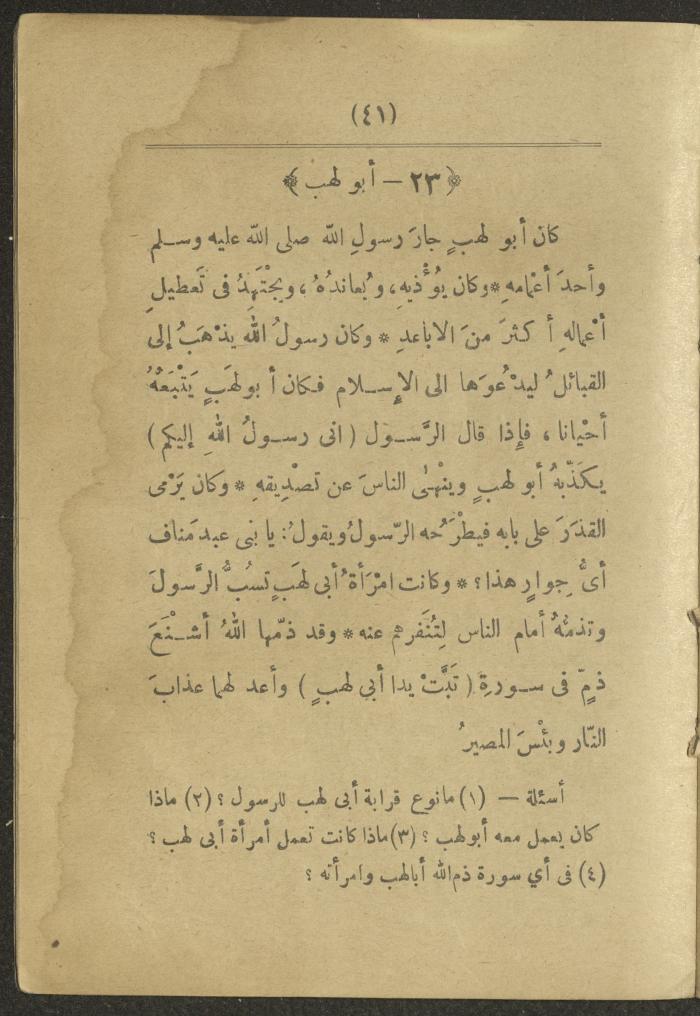 (٤١)
﴿ ٢٣ — أبو لهب ﴾
كان أبو لهبٍ جارَ رسولِ الله صلى الله عليه وسلم
وأحدَ أعْمامهِ * وكان يُؤْذيهِ، ويُعاندُهُ، ويجْتَهِدُ فى تَعطيلِ
أعْمالهِ أكثرَ منَ الاباعدِ * وكان رسولُ الله يذْهَبُ إلى
القبائلُ ليدْعُوَها الى الإسلام فكان أبو لهَبٍ يَتْبَعُهُ
أحْيانا، فإِذا قال الرَّسول (انى رسولُ اللهِ إليكم)
يكَذّبهُ أبو لهبٍ وينْهٰى الناسَ عن تصْدِيقهِ * وكان يَرْمى
القذَرَ على بابه فيطْرَحُه الرّسولُ ويقولُ: يا بنى عبد مَناف
أىُّ جِوارٍ هذا؟ * وكانت امْرَأةُ أبى لهَبٍ تسُبُّ الرَّسولَ
وتذمُّهُ أمام الناس لِتُنَفرهم عنه * وقد ذمّها اللهُ أشْنَعَ
ذمٍّ فى سورةِ (تَبَّتْ يدا أبي لهبٍ) وأعد لهما عذابَ
النّار وبئْسَ المصيرُ
أسئلة — (١) مانوع قرابة أبى لهب للرسول؟ (٢) ماذا
كان يعمل معه أبولهب؟ (٣) ماذا كانت تعمل أمرأة أبى لهب؟
(٤) فى أي سورة ذم الله أبالهب وامرأته؟